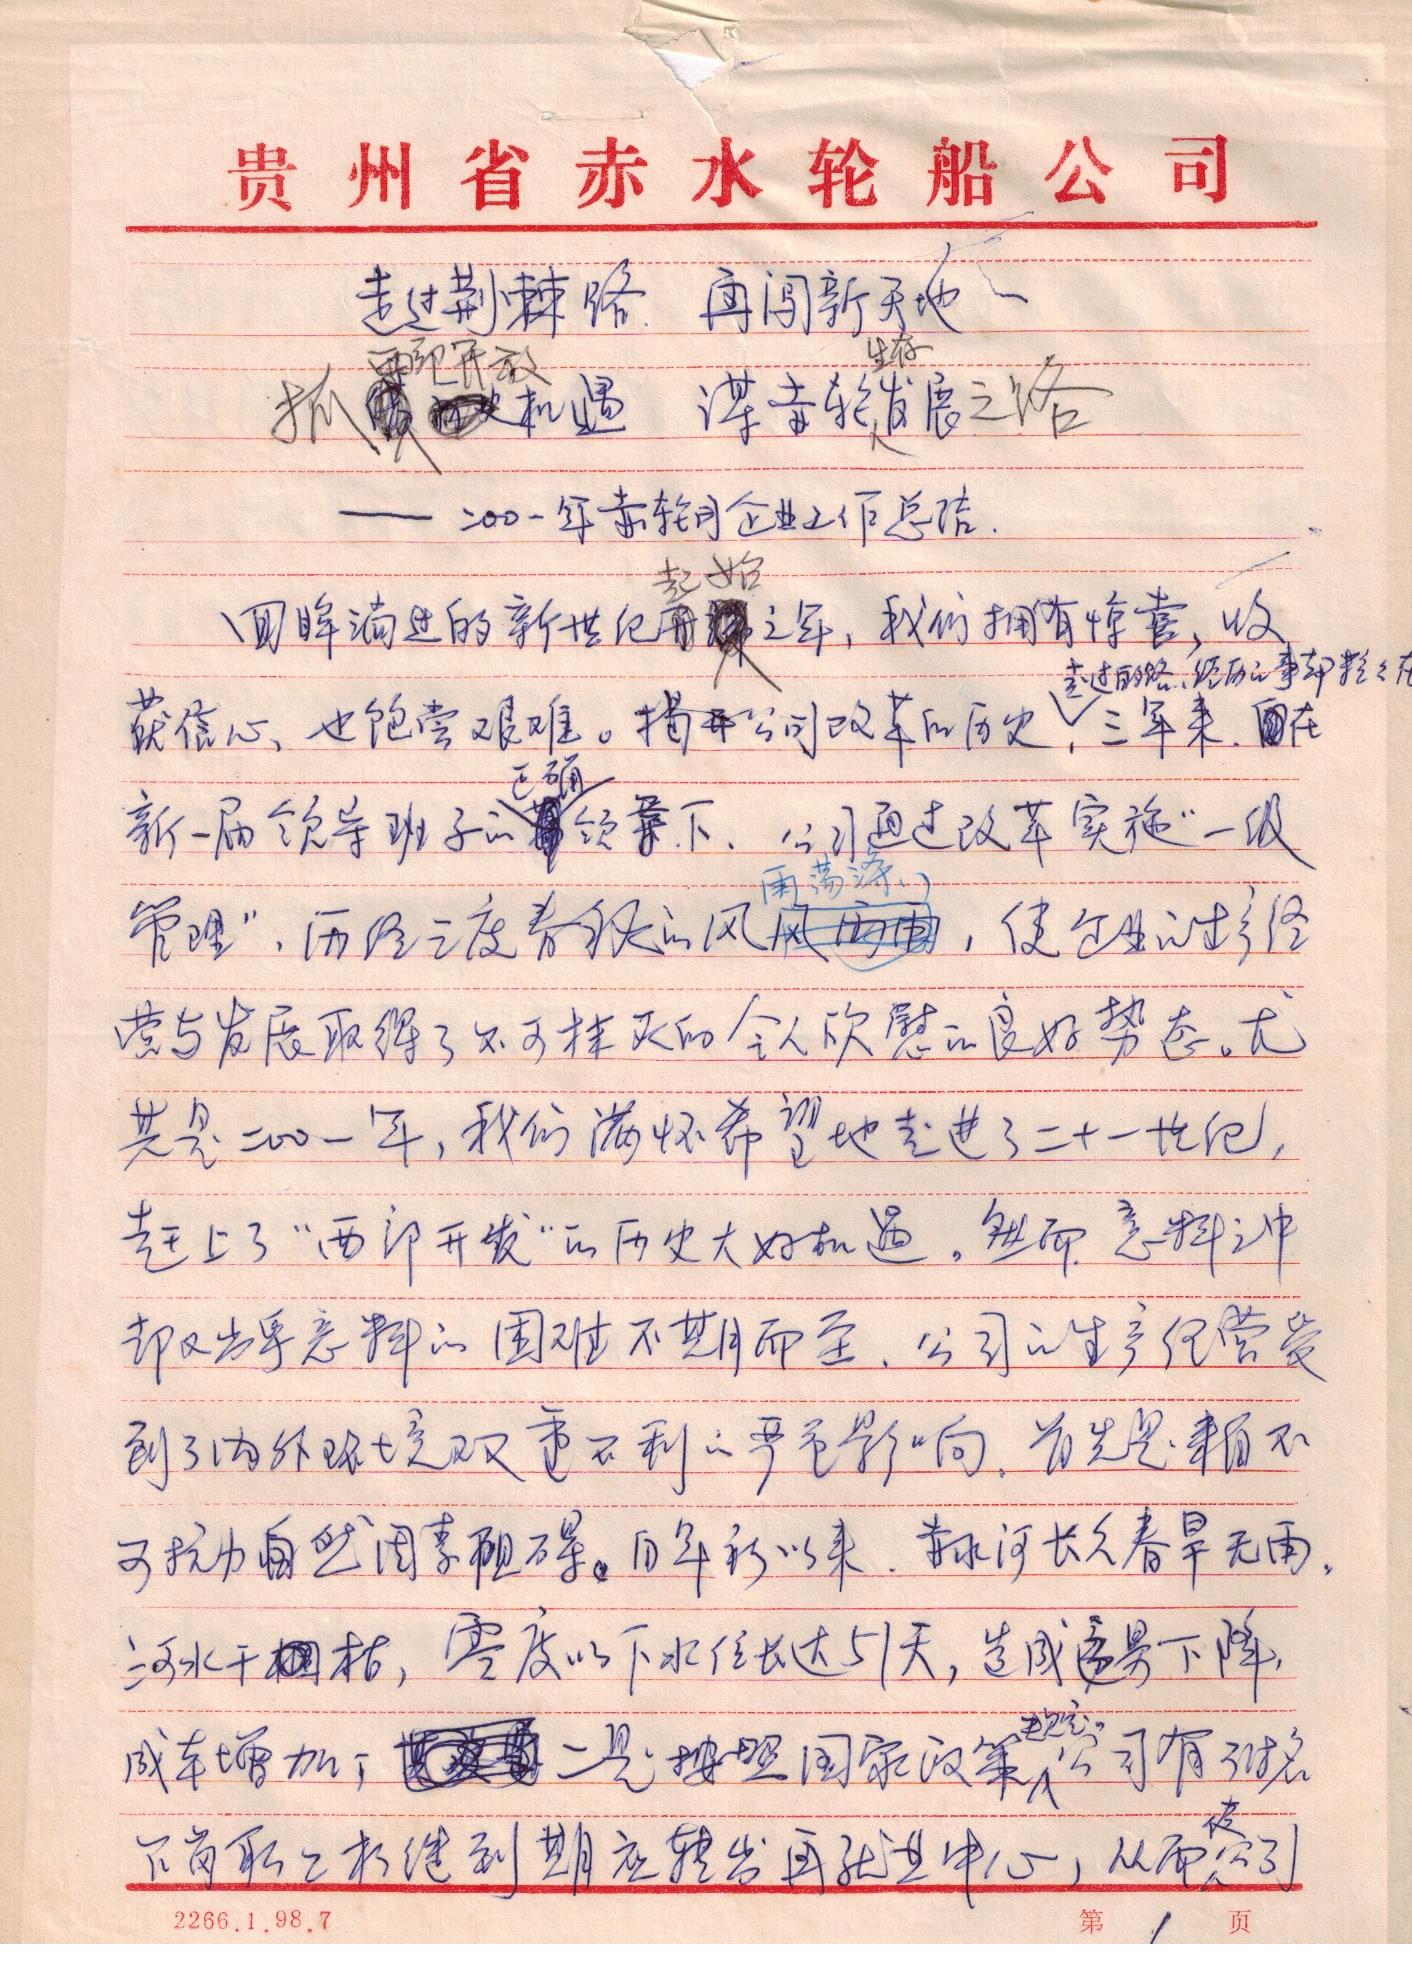 贵州省赤水轮船公司
走过荆棘路 再闯新天地
西部开放
生存
抓机遇 谋赤轮发展之路
——二〇〇一年赤轮司企业工作总结.
起始
回眸淌过的新世纪之年,我们拥有惊喜,收
走过的路、经历的事却
获信心、也饱尝艰难。揭开公司改革的历史,三年来.在
正确
新一届领导班子的领导下.公司通过改革实施"一级
雨荡涤
管理",历经三度春秋的风,使企业的生产经
营与发展取得了不可抹灭的令人欣慰的良好势态。尤
其是二〇〇一年,我们满怀希望地走进了二十一世纪,
赶上了"西部开发"的历史大好机遇。然而意料之中
却又出乎意料的困难不期而至.公司的生产经营受
到了内外环境双重不利的严重影响.首先是来自不
可抗力自然因素阻碍。自年初以来.赤水河长久春旱无雨.
河水干枯,零度以下水位长达51天,造成运量下降,
规定
成本增加;二是按照国家政策公司有 名
使
下岗职工相继到期应转出再就业中心,从而公司
2266.1.98.7
第 1 页